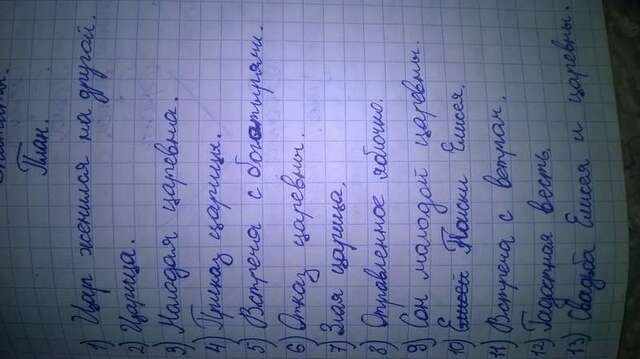 План.
1) Цар женился на другой.
2) Царица.
3) Молодая царевна.
4) Приказ царицы.
5) Встреча с богатырями.
6) Отказ царевны.
7) Злая царица.
8) Отравленное яблочко.
9) Сон молодой царевны.
10) Поиски Елисея.
11) Встреча с ветром.
12) Радостная весть.
13) Свадьба Елисея и царевны.